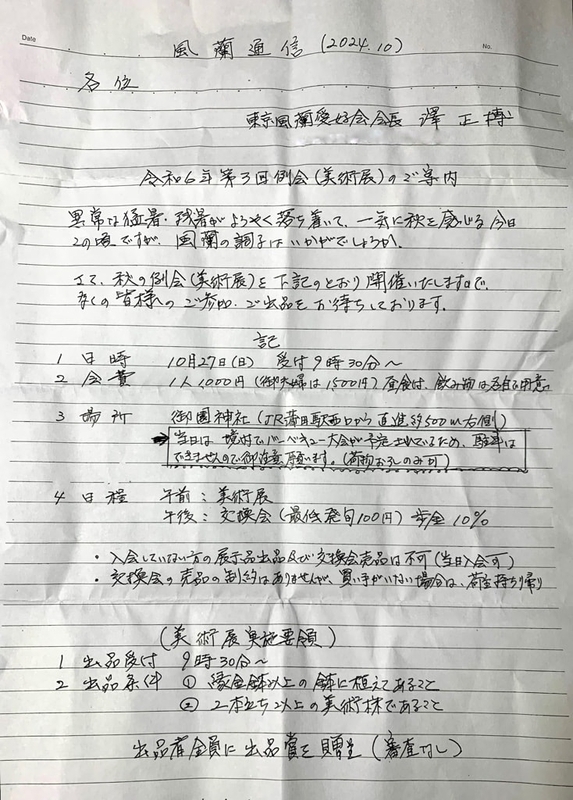 Date
No.
風蘭通信 (2024.10)
各位
東京風蘭愛好会会長 澤 正博
令和6年第3回例会(美術展)のご案内
異常な猛暑・残暑がようやく落ち着いて、一気に秋を感じる今日
この頃ですが、風蘭の調子はいかがでしょうか。
さて、秋の例会(美術展)を下記のとおり開催いたしますので、
多くの皆様のご参加、ご出品をお待ちしております。
記
1 日時 10月27日(日) 受付9時30分〜
2 会費 1人1000円(御夫婦は1500円)昼食は、飲み物は各自用意
3 場所 御園神社(JR蒲田駅西口から直進約500m右側)
→当日は境内でバーベキュー大会が予定されているため、駐車は
できませんので御注意願います。(荷物おろしのみ可)
4 日程 午前:美術展
午後:交換会(最低発句100円) 歩金10%
・入会していない方の展示品出品及び交換会売品は不可(当日入会可)
・交換会の売品の制約はありませんが、買い手がいない場合は、荷主持ち帰り
(美術展実施要領)
1 出品受付 9時30分〜
2 出品条件 ① 縁金鉢以上の鉢に植えてあること
② 2本立ち以上の美術株であること
出品者全員に出品賞を贈呈(審査なし)